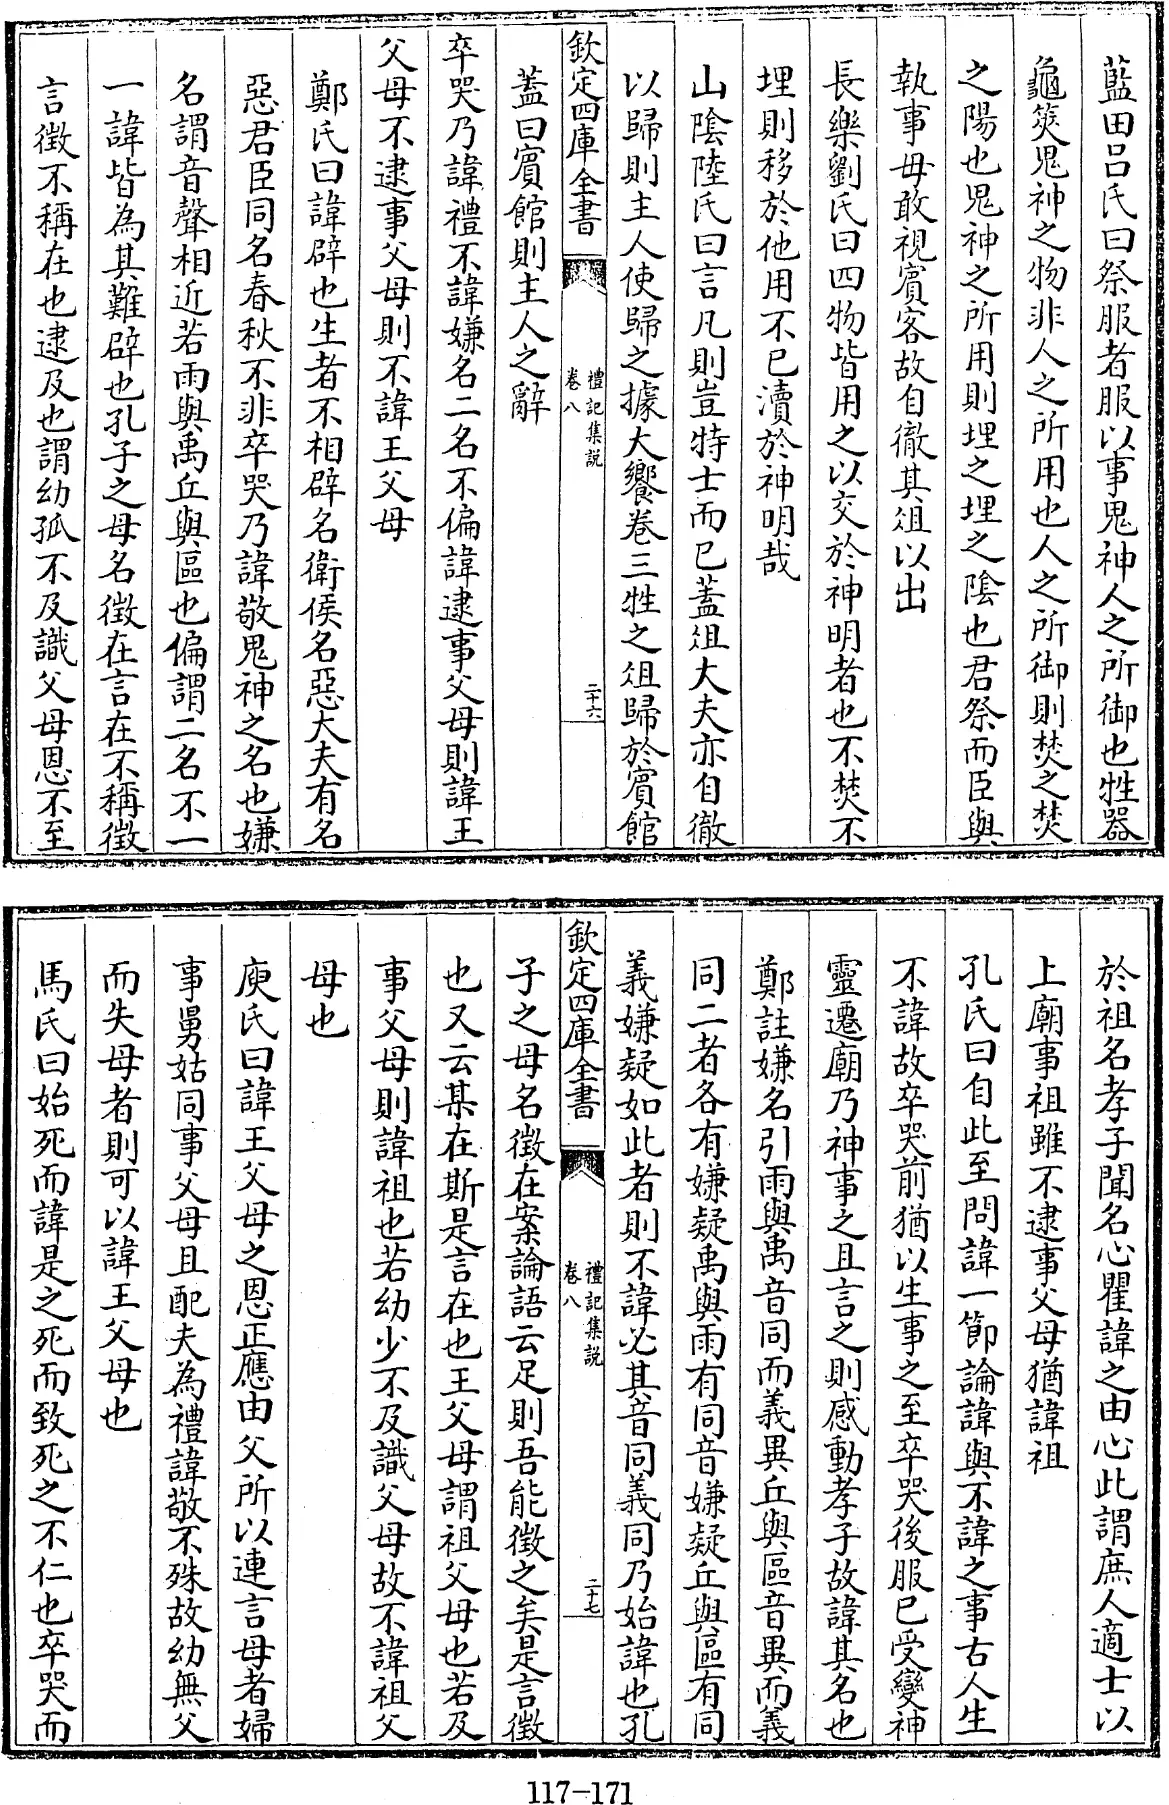 藍田吕氏曰祭服者服以事鬼神人之所御也牲器
龜筴鬼神之物非人之所用也人之所御則焚之焚
之陽也鬼神之所用則埋之埋之隂也君祭而臣與
執事毋敢視賓客故自徹其俎以出
長樂劉氏曰四物皆用之以交於神明者也不焚不
埋則移於他用不已瀆於神明哉
山隂陸氏曰言凡則豈特士而已蓋俎大夫亦自徹
以歸則主人使歸之據大饗卷三牲之俎歸於賓館
欽定四庫全書
禮記集說
卷八
二十六
蓋曰賓館則主人之辭
卒哭乃諱禮不諱嫌名二名不偏諱逮事父母則諱王
父母不逮事父母則不諱王父母
鄭氏曰諱辟也生者不相辟名衛侯名惡大夫有名
惡君臣同名春秋不非卒哭乃諱敬鬼神之名也嫌
名謂音聲相近若雨與禹丘與區也偏謂二名不一
一諱皆為其難辟也孔子之母名徵在言在不稱徵
言徵不稱在也逮及也謂幼孤不及識父母恩不至
於祖名孝子聞名心瞿諱之由心此謂庶人適士以
上廟事祖雖不逮事父母猶諱祖
孔氏曰自此至問諱一節論諱與不諱之事古人生
不諱故卒哭前猶以生事之至卒哭後服已受變神
靈遷廟乃神事之且言之則感動孝子故諱其名也
鄭註嫌名引雨與禹音同而義異丘與區音異而義
同二者各有嫌疑禹與雨有同音嫌疑丘與區有同
義嫌疑如此者則不諱必其音同義同乃始諱也孔
欽定四庫全書
禮記集說
卷八
二十七
子之母名徵在案論語云足則吾能徵之矣是言徵
也又云某在斯是言在也王父母謂祖父母也若及
事父母則諱祖也若幼少不及識父母故不諱祖父
母也
庾氏曰諱王父母之恩正應由父所以連言母者婦
事舅姑同事父母且配夫為禮諱敬不殊故幼無父
而失母者則可以諱王父母也
馬氏曰始死而諱是之死而致死之不仁也卒哭而
117-171